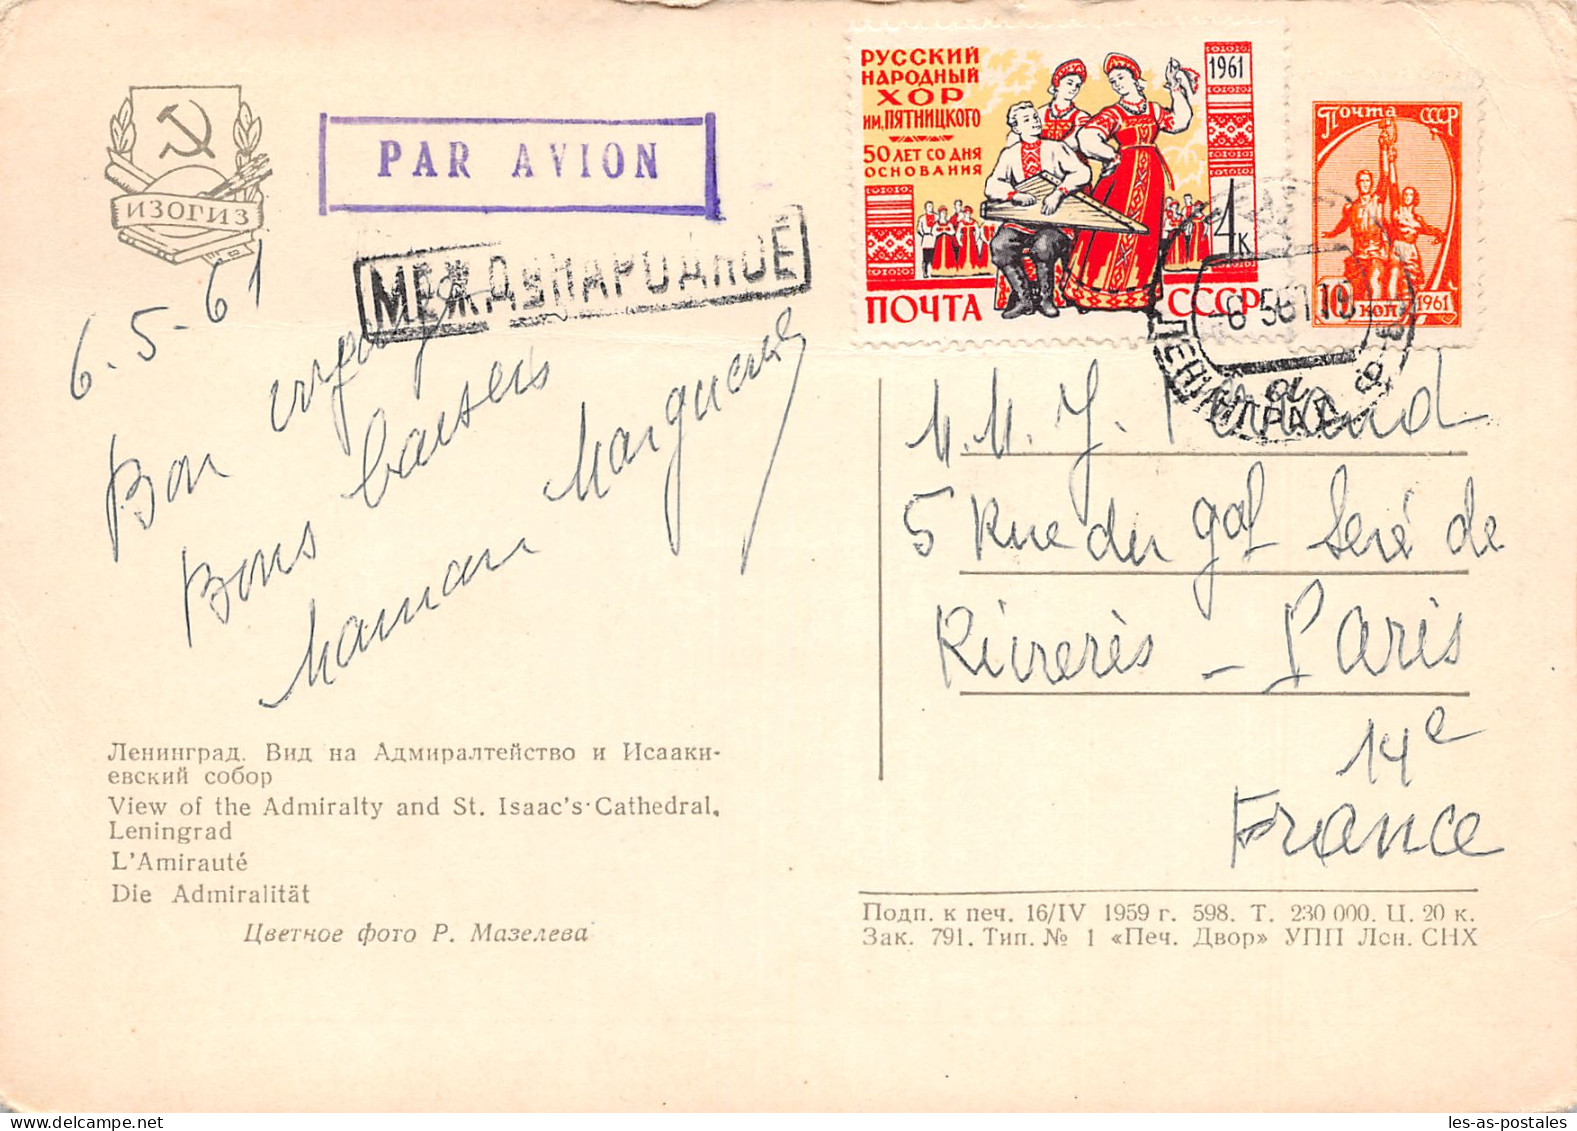 ИЗОГИЗ
PAR AVION
МЕЖДУНАРОДНОЕ
6.5-61
Bon voyage
Bons baisers
Maman Marguerite
Ленинград. Вид на Адмиралтейство и Исааки-
евский собор
View of the Admiralty and St. Isaac's Cathedral,
Leningrad
L'Amirauté
Die Admiralität
Цветное фото Р. Мазелева
РУССКИЙ
НАРОДНЫЙ
ХОР
ИМ. ПЯТНИЦКОГО
50 ЛЕТ СО ДНЯ
ОСНОВАНИЯ
1961
4 К
ПОЧТА СССР
Почта СССР
10 КОП 1961
ЛЕНИНГРАД
M.M. J.
5 Rue du gal Seré de
Rivierès - Paris
14e
France
Подп. к печ. 16/IV 1959 г. 598. Т. 230 000. Ц. 20 к.
Зак. 791. Тип. № 1 «Печ. Двор» УПП Лен. СНХ
les-as-postales